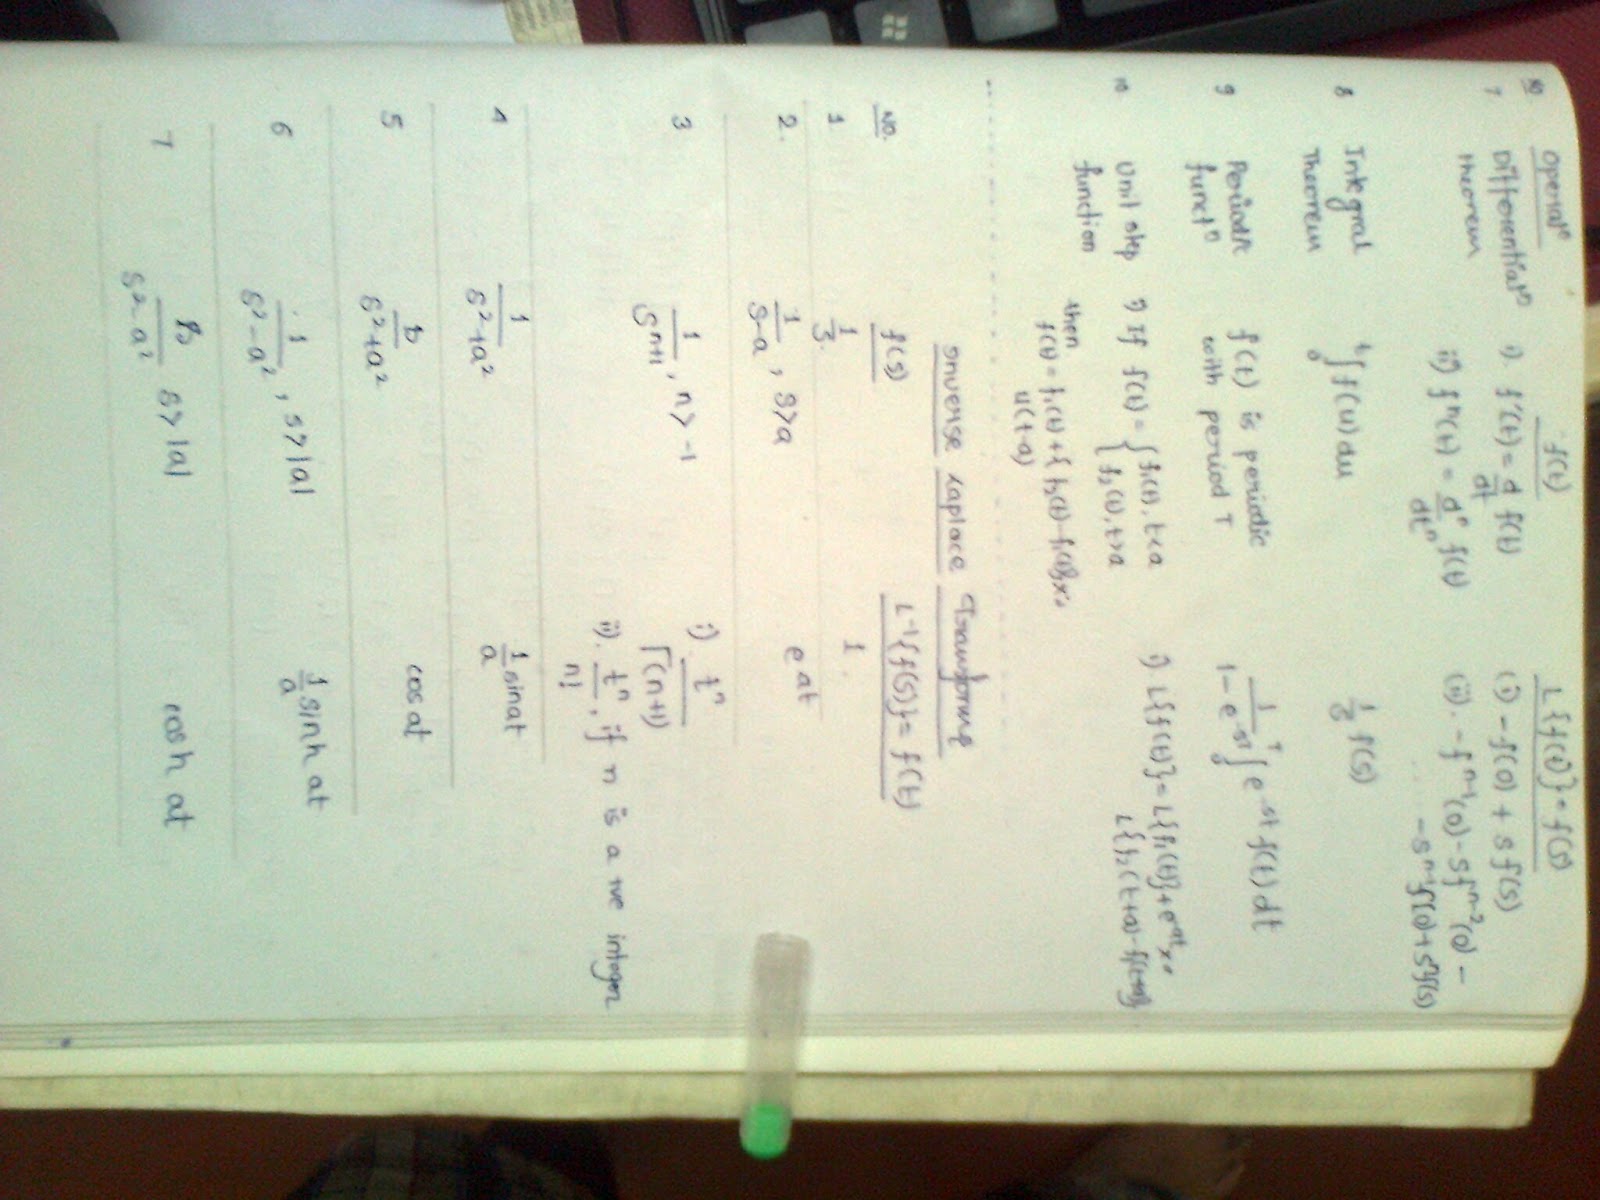 NO. Operatⁿ f(t) L{f(t)} = f(s)
7 Differentialⁿ theorem i). f'(t) = d/dt f(t) (i) - f(0) + s f(s)
ii) fⁿ(t) = dⁿ/dtⁿ f(t) (ii). - fⁿ⁻¹(0) - s fⁿ⁻²(0) - ... - sⁿ⁻¹f(0) + sⁿf(s)
8 Integral Theorem ₀∫ᵗ f(u) du 1/s f(s)
9 Periodic functⁿ f(t) is periodic with period T 1/(1 - e⁻ˢᵀ) ₀∫ᵀ e⁻ˢᵗ f(t) dt
10 Unit step function i) If f(t) = { f₁(t), t<a
{ f₂(t), t>a
then f(t) = f₁(t) + { f₂(t) - f₁(t)} x
u(t-a)
i) L{f(t)} = L{f₁(t)} +
Inverse Laplace Transforms
NO. f(s) L⁻¹{f(s)} = f(t)
1. 1/s. 1.
2. 1/(s-a), s>a e at
3 1/sⁿ⁺¹, n > -1 i). tⁿ/Γ(n+1)
ii). tⁿ/n!, if n is a +ve integer
4 1/(s²+a²) 1/a sinat
5 s/(s²+a²) cosat
6 1/(s²-a²), s>|a| 1/a sinh at
7 s/(s²-a²) s>|a| cosh at